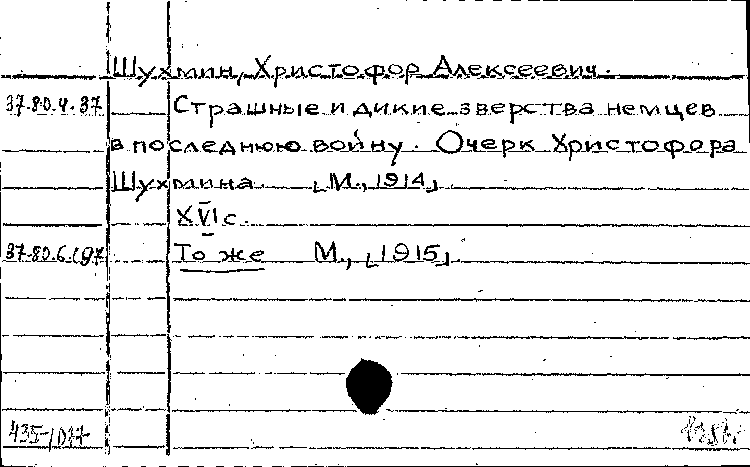 Шухмин, Христофор Алексеевич.
37.80.4.37 Страшные и дикие зверства немцев
в последнюю войну. Очерк Христофора
Шухмина. [М., 1914].
XVI с.
37.80.6.197 То же М., [1915].